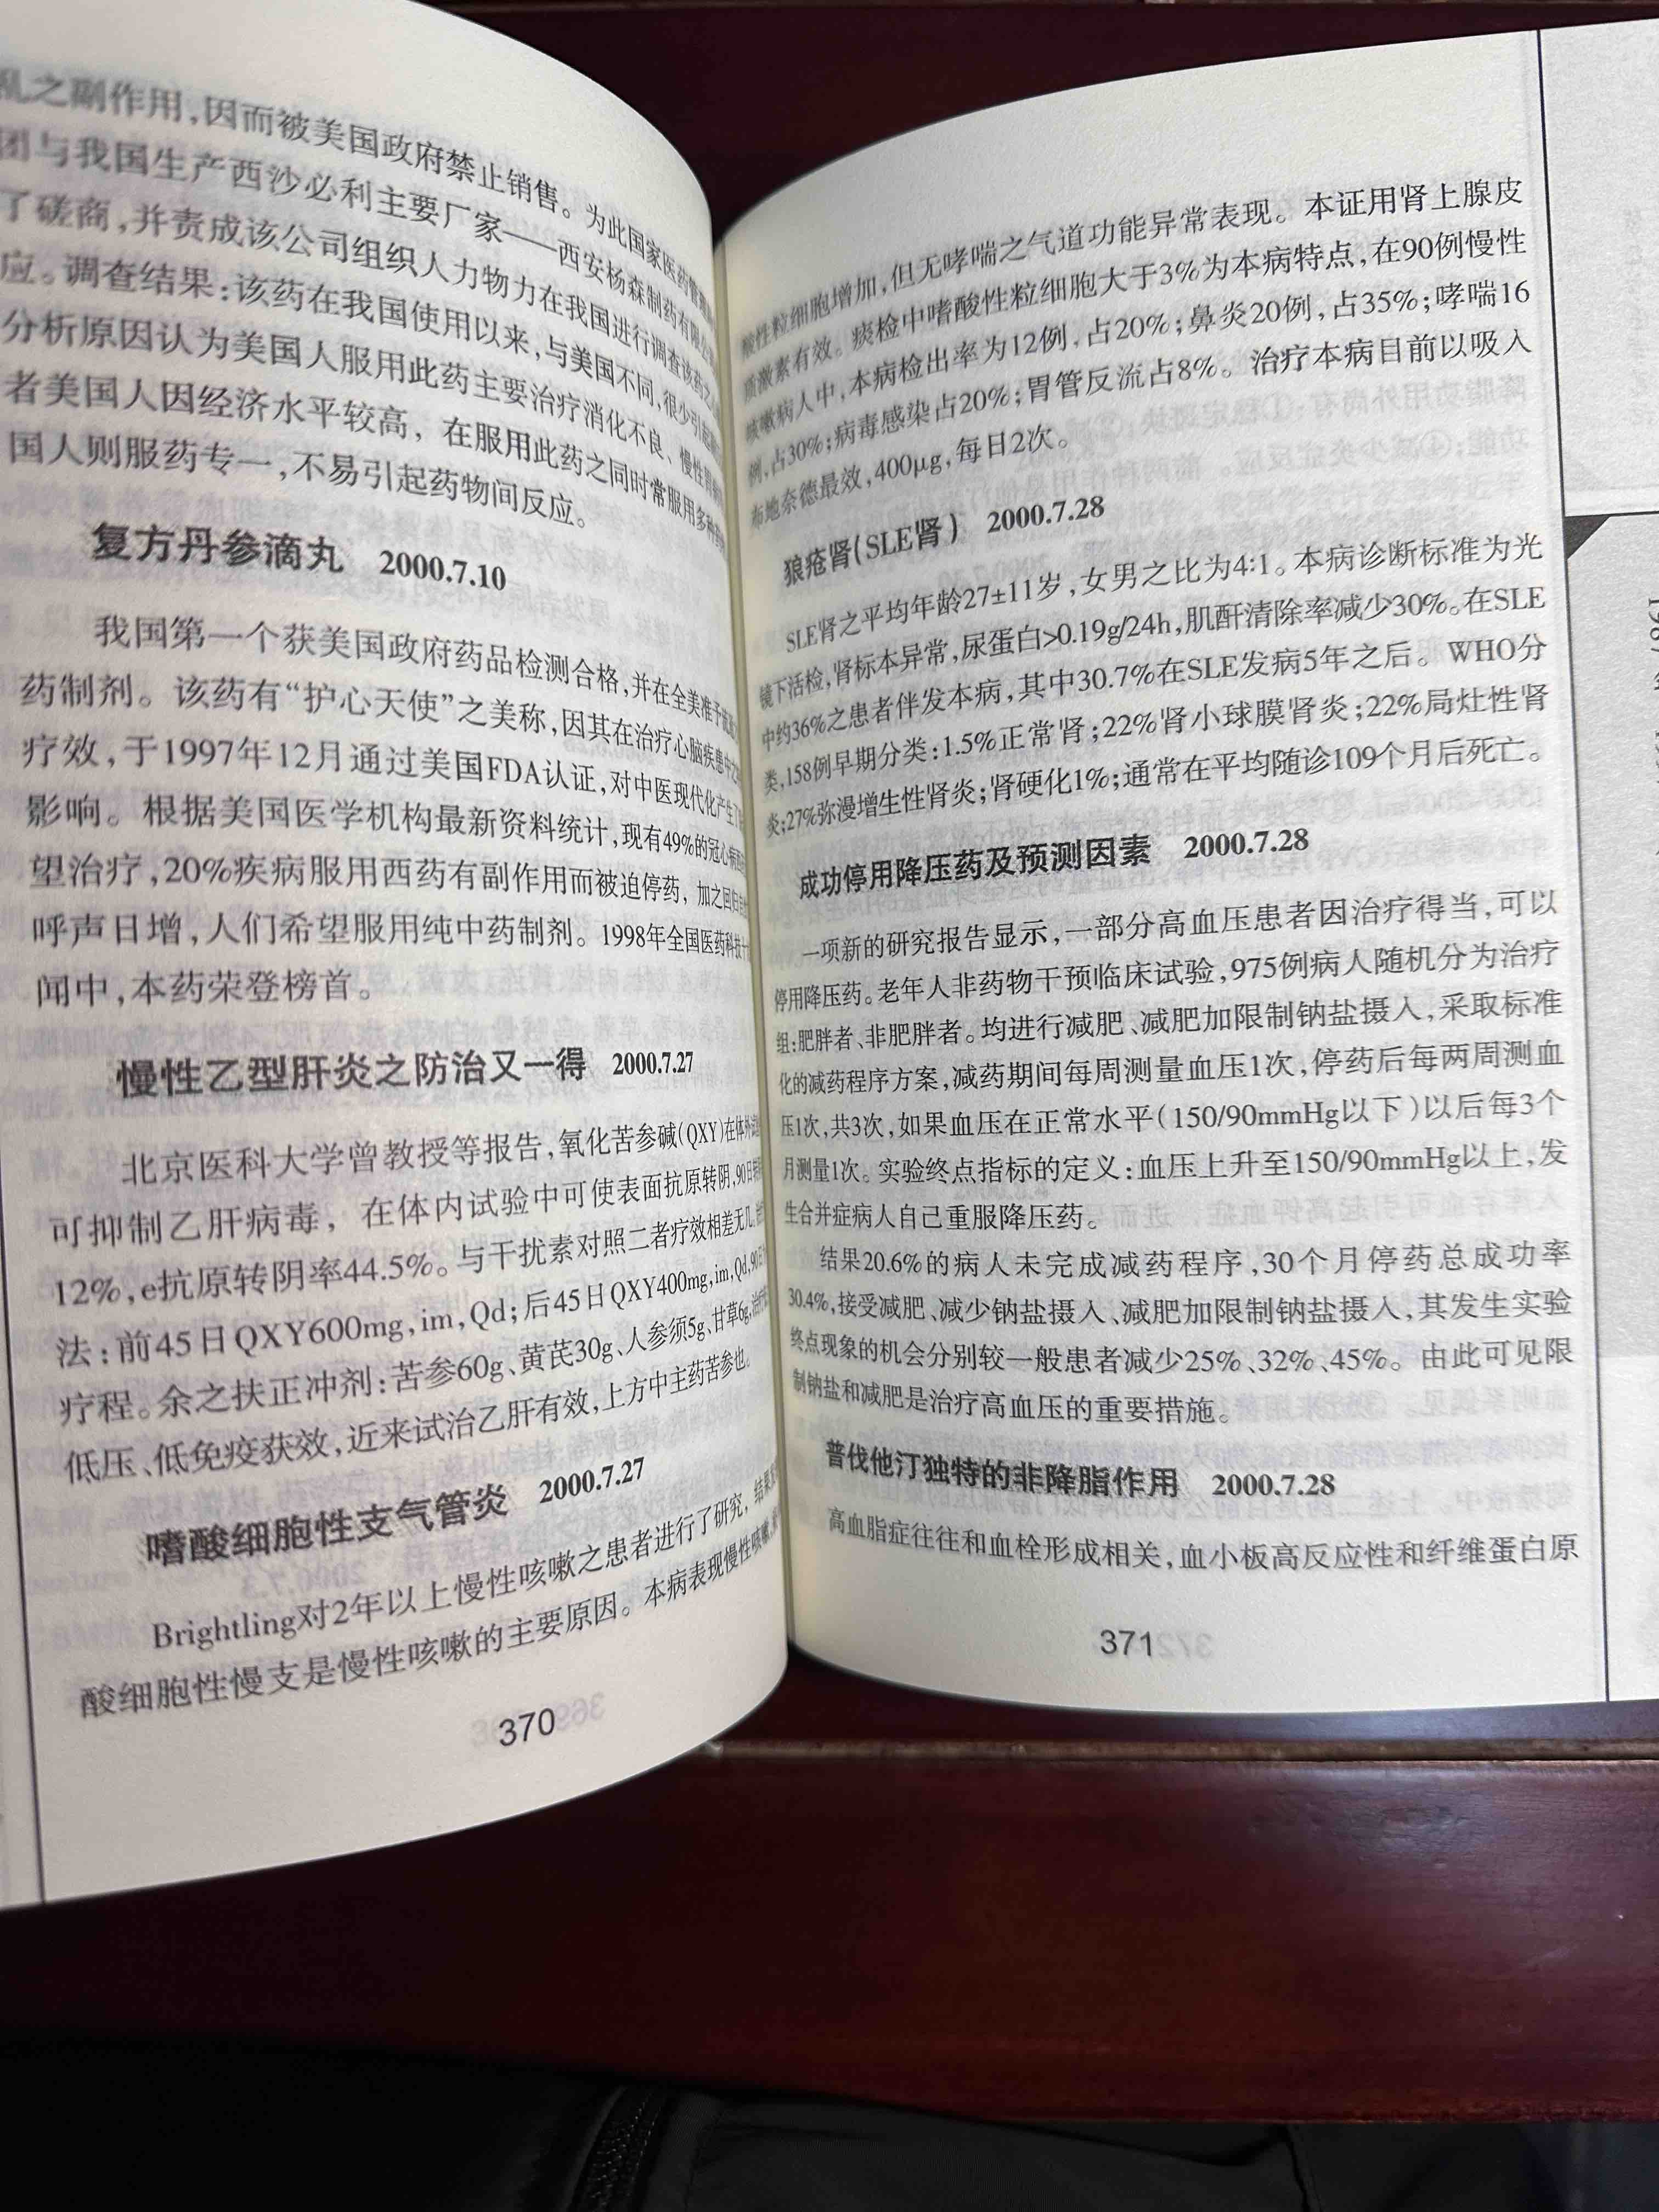 乱之副作用,因而被美国政府禁止销售。为此国家医药管理
团与我国生产西沙必利主要厂家——西安杨森制药有限公
了磋商,并责成该公司组织人力物力在我国进行调查该药之
应。调查结果:该药在我国使用以来,与美国不同,很少引起
分析原因认为美国人服用此药主要治疗消化不良、慢性胃
者美国人因经济水平较高,在服用此药之同时常服用多种
国人则服药专一,不易引起药物间反应。
复方丹参滴丸 2000.7.10
我国第一个获美国政府药品检测合格,并在全美准予
药制剂。该药有“护心天使”之美称,因其在治疗心脑疾患中之
疗效,于1997年12月通过美国FDA认证,对中医现代化产生了
影响。根据美国医学机构最新资料统计,现有49%的冠心病
望治疗,20%疾病服用西药有副作用而被迫停药,加之回归
呼声日增,人们希望服用纯中药制剂。1998年全国医药科技十
闻中,本药荣登榜首。
慢性乙型肝炎之防治又一得 2000.7.27
北京医科大学曾教授等报告,氧化苦参碱(QXY)在体外
可抑制乙肝病毒,在体内试验中可使表面抗原转阴,90日
12%,e抗原转阴率44.5%。与干扰素对照二者疗效相差无几。
法:前45日QXY600mg,im,Qd;后45日QXY400mg,im,Qd,90日
疗程。余之扶正冲剂:苦参60g、黄芪30g、人参须5g、甘草6g,治疗
低压、低免疫获效,近来试治乙肝有效,上方中主药苦参也。
嗜酸细胞性支气管炎 2000.7.27
Brightling对2年以上慢性咳嗽之患者进行了研究,结果
酸细胞性慢支是慢性咳嗽的主要原因。本病表现慢性咳嗽,
370
酸性粒细胞增加,但无哮喘之气道功能异常表现。本证用肾上腺皮
质激素有效。痰检中嗜酸性粒细胞大于3%为本病特点,在90例慢性
咳嗽病人中,本病检出率为12例,占20%;鼻炎20例,占35%;哮喘16
例,占30%;病毒感染占20%;胃管反流占8%。治疗本病目前以吸入
布地奈德最效,400μg,每日2次。
狼疮肾(SLE肾) 2000.7.28
SLE肾之平均年龄27±11岁,女男之比为4:1。本病诊断标准为光
镜下活检,肾标本异常,尿蛋白>0.19g/24h,肌酐清除率减少30%。在SLE
中约36%之患者伴发本病,其中30.7%在SLE发病5年之后。WHO分
类,158例早期分类:1.5%正常肾;22%肾小球膜肾炎;22%局灶性肾
炎;27%弥漫增生性肾炎;肾硬化1%;通常在平均随诊109个月后死亡。
成功停用降压药及预测因素 2000.7.28
一项新的研究报告显示,一部分高血压患者因治疗得当,可以
停用降压药。老年人非药物干预临床试验,975例病人随机分为治疗
组:肥胖者、非肥胖者。均进行减肥、减肥加限制钠盐摄入,采取标准
化的减药程序方案,减药期间每周测量血压1次,停药后每两周测血
压1次,共3次,如果血压在正常水平(150/90mmHg以下)以后每3个
月测量1次。实验终点指标的定义:血压上升至150/90mmHg以上,发
生合并症病人自己重服降压药。
结果20.6%的病人未完成减药程序,30个月停药总成功率
30.4%,接受减肥、减少钠盐摄入、减肥加限制钠盐摄入,其发生实验
终点现象的机会分别较一般患者减少25%、32%、45%。由此可见限
制钠盐和减肥是治疗高血压的重要措施。
普伐他汀独特的非降脂作用 2000.7.28
高血脂症往往和血栓形成相关,血小板高反应性和纤维蛋白原
371